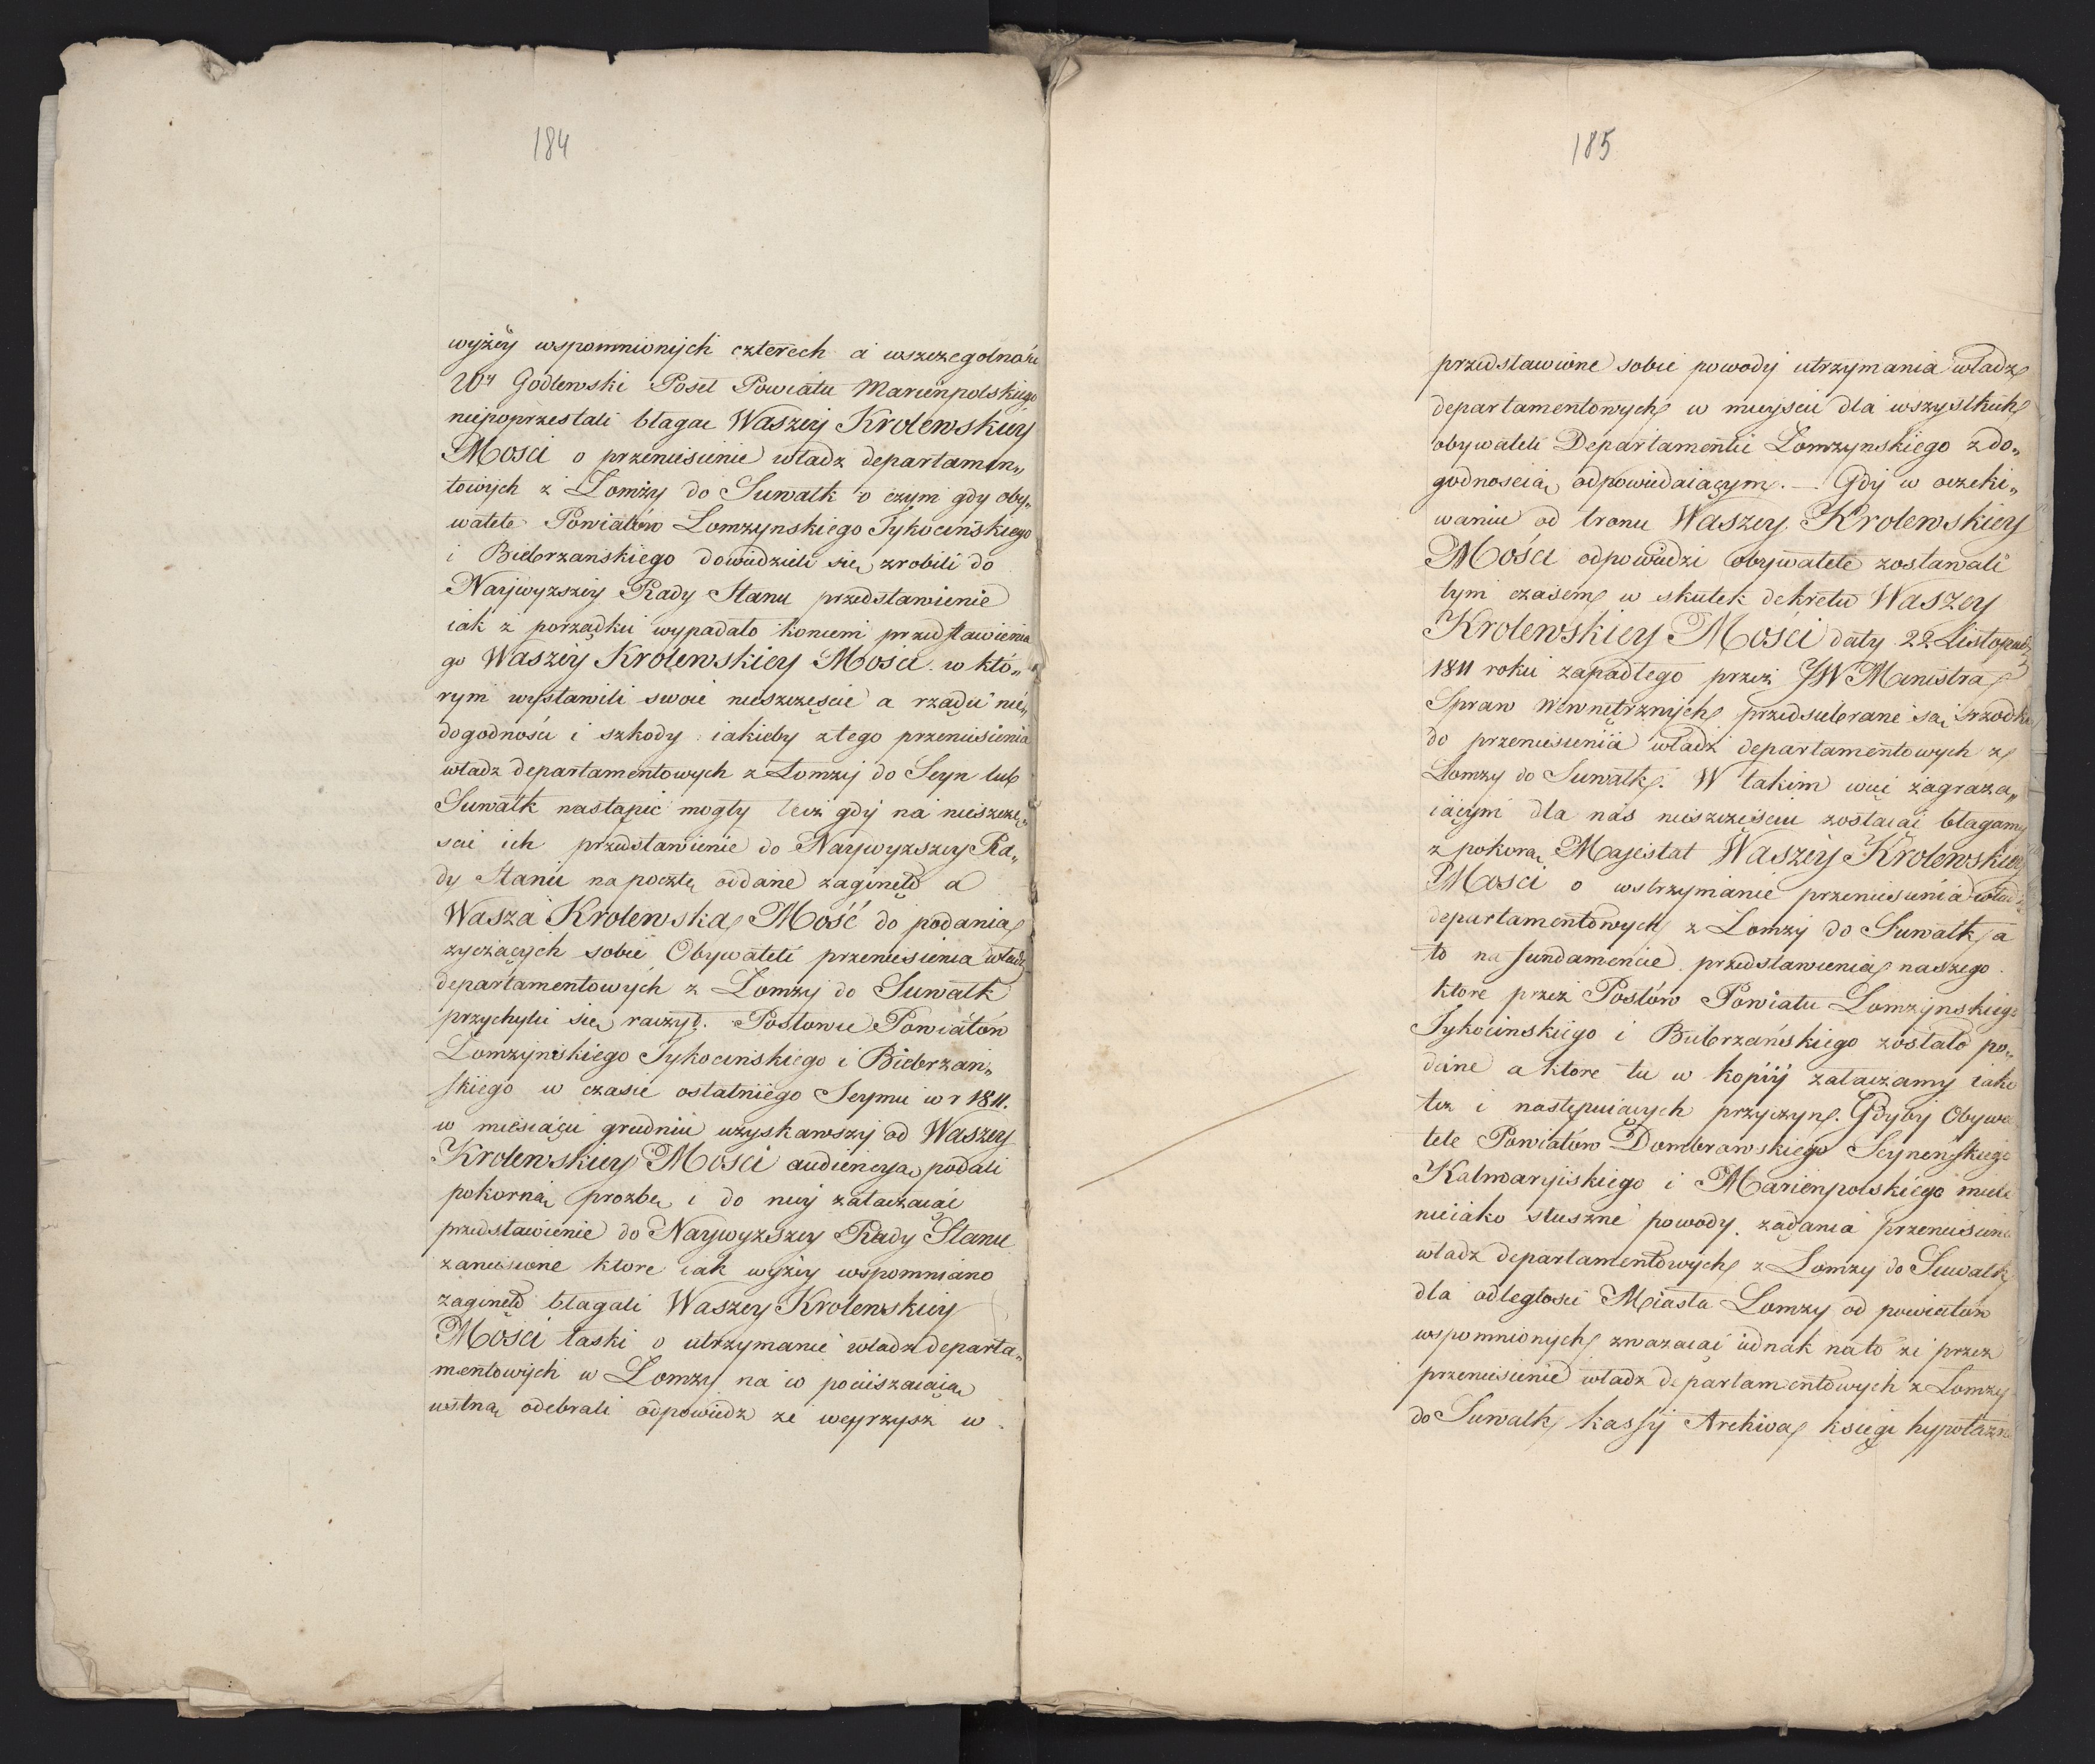 184
wyżéy wspomnionych czterech a wszczegolnośći
Wy Godlewski Poseł Powiatu Marienpolskiego
niepoprzestali błagać Waszey Krolewskiey
Mosci o przeniesienie władz departamen„
towych z Łomży do Suwałk o czym gdy oby„
watele Powiatów Łomzynskiego Tykocińskiego
i Biebrzanskiego dowiedzieli się zrobili do
Naywyzszey Rady Stanu przedstawienie
iak z porządku wypadało koniem przedstawienia
go Waszey Krolewskiey Mosci w któ„
rym wystawili swoie nieszczęscie a rządu nie„
dogodności i szkody iakieby ztego przeniesienia
władz departamentowych z Łomzy do Seyn lub
Suwałk nastąpić mogły lecz gdy na nieszczę„
scie ich przedstawienie do Naywyzszey Ra„
dy Stanu na pocztę oddane zagineło a
Wasza Krolewska Mość do podania
zyczących sobie Obywateli przeniesienia władz
departamentowych z Łomzy do Suwałk
przychylić się raczył. Posłowie Powiatów
Łomzynskiego Tykocinskiego i Biebrzan„
skiego w czasie ostatniego Seymu w r 1811.
w miesiącu grudniu uzyskawszy od Waszey
Krolewskiey Mosci audiencyą podali
pokorną prozbę i do niey załaczaiąc
przedstawienie do Naywyzszey Rady Stanu
zaniesione ktore iak wyżey wspomniano
zagineło błagali Waszey Krolewskiey
Mości łaski o utrzymanie władz departa„
mentowych w Łomzy na co pocieszaiącą
ustną odebrali odpowiedz ze weyrzysz w
185
przedstawione sobie powody utrzymania władz
departamentowych w mieyscu dla wszystkich
obywateli Departamentu Łomzynskiego z do„
godnoscią odpowiedaiącym. — Gdy w oczeki„
waniu od tronu Waszey Krolewskiey
Mości odpowiedzi obywatele zostawali
tym czasem w skutek dekretu Waszey
Krolewskiey Mości daty 22 Listopada
1811 roku zapadłego przez JW Ministra
Spraw Wewnętrznych przedsiebrane są srzodki
do przeniesienia władz departamentowych z
Łomzy do Suwałk. W takim więc zagraza„
iącym dla nas nieszczęsciu zostaiąc błagamy
z pokorą Majestat Waszey Krolewskiey
Mosci o wstrzymanie przeniesienia władz
departamentowych z Łomzy do Suwałk, a
to na fundamencie przedstawienia naszego
ktore przez Posłów Powiatu Łomzynskiego
Tykocinskiego i Biebrzańskiego zostało po„
dane a ktore tu w kopiy załaczamy iako
tez i następuiących przyczyn. Gdyby Obywa
tele Powiatów Dombrowskiego Seynenskiego
Kalwaryiskiego i Marienpolskiego mieli
nieiako słuszne powody ządania przeniesienia
władz departamentowych z Łomzy do Suwałk
dla odległosci Miasta Łomzy od powiatów
wspomnionych zwazaiąc iednak na to ze przez
przeniesienie władz departamentowych z Łomzy
do Suwałk kassy Archiwa księgi hypoteczne